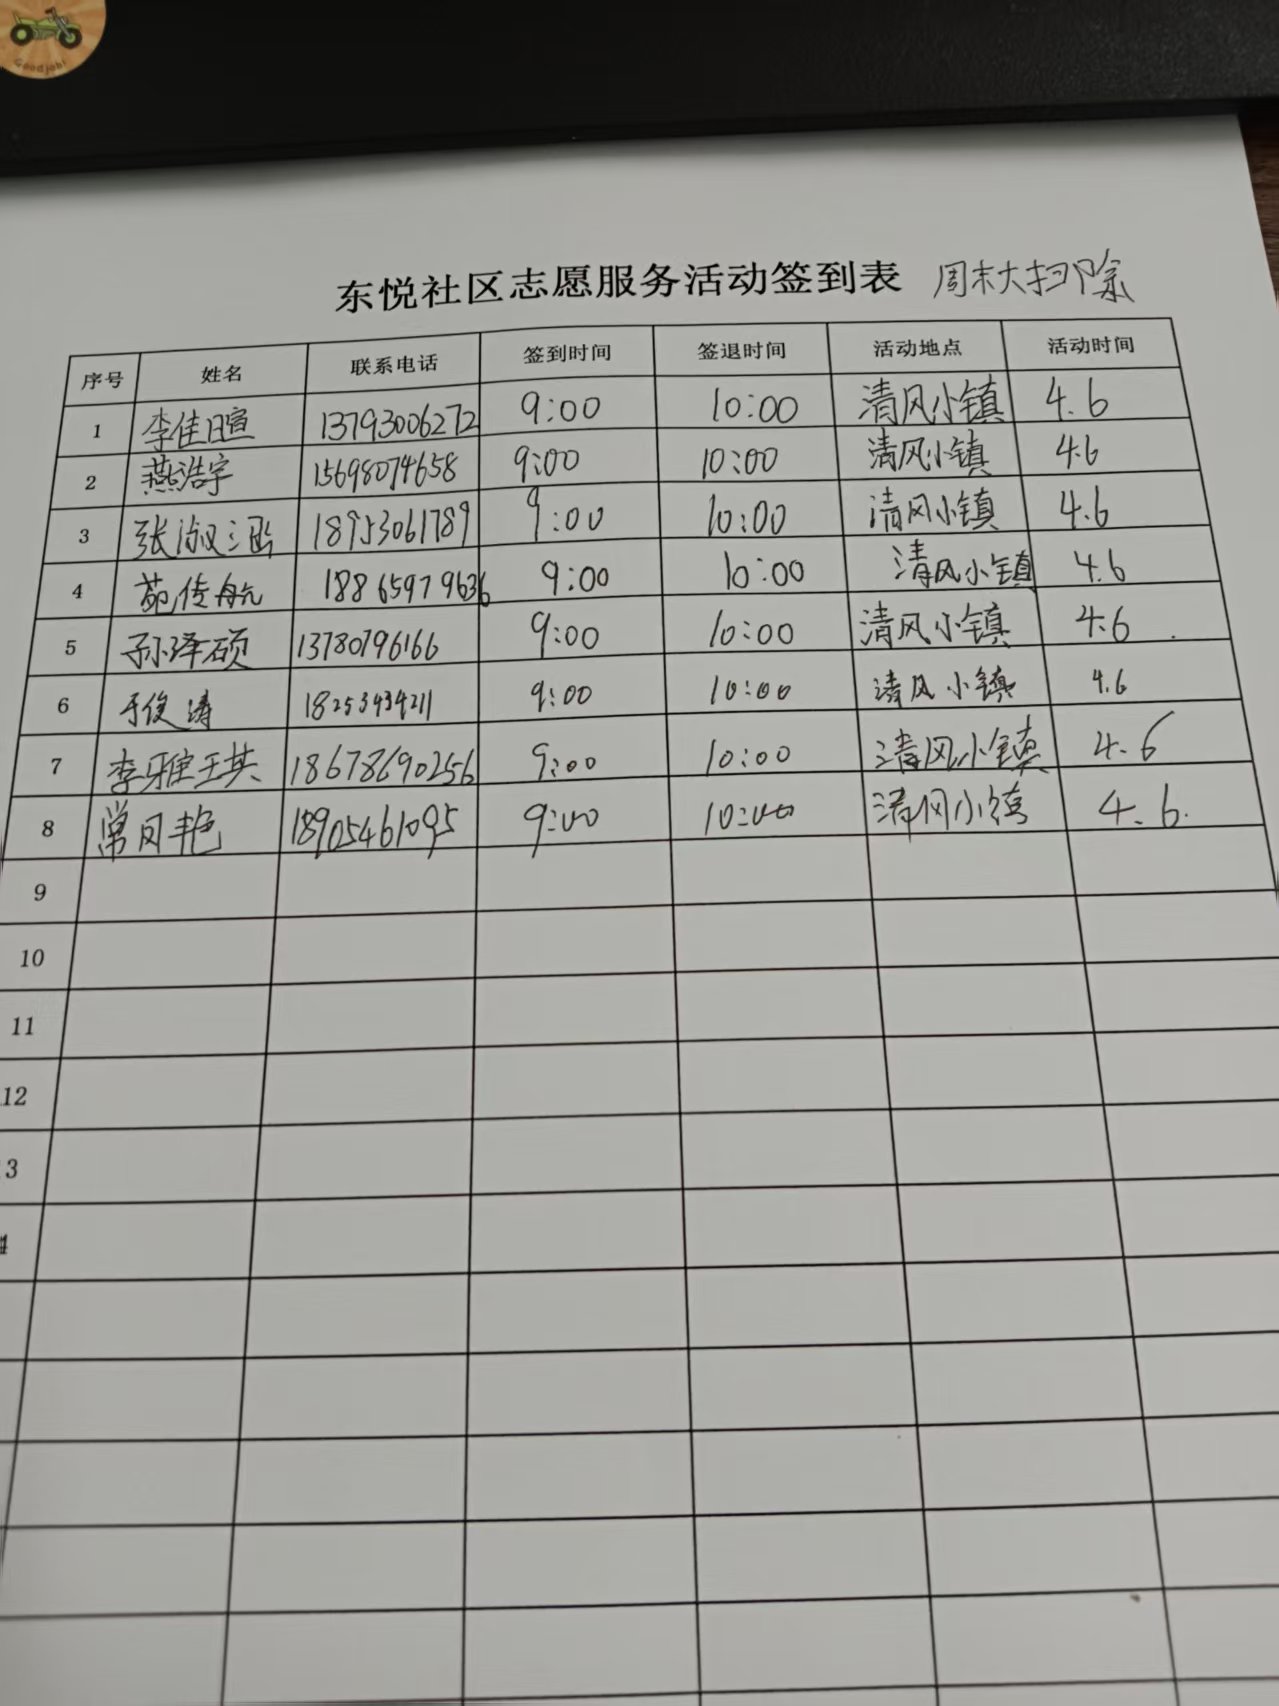 Goodjob!
东悦社区志愿服务活动签到表 周末大扫除
序号 姓名 联系电话 签到时间 签退时间 活动地点 活动时间
1 李佳暄 13793006272 9:00 10:00 清风小镇 4.6
2 燕浩宇 15698074658 9:00 10:00 清风小镇 4.6
3 张淑涵 18953061789 9:00 10:00 清风小镇 4.6
4 苑传航 18865979636 9:00 10:00 清风小镇 4.6
5 孙泽硕 13780796166 9:00 10:00 清风小镇 4.6
6 于俊涛 18253434211 9:00 10:00 清风小镇 4.6
7 李雅琪 18678690256 9:00 10:00 清风小镇 4.6
8 常风艳 18905461095 9:00 10:00 清风小镇 4.6.
9
10
11
12
3
4